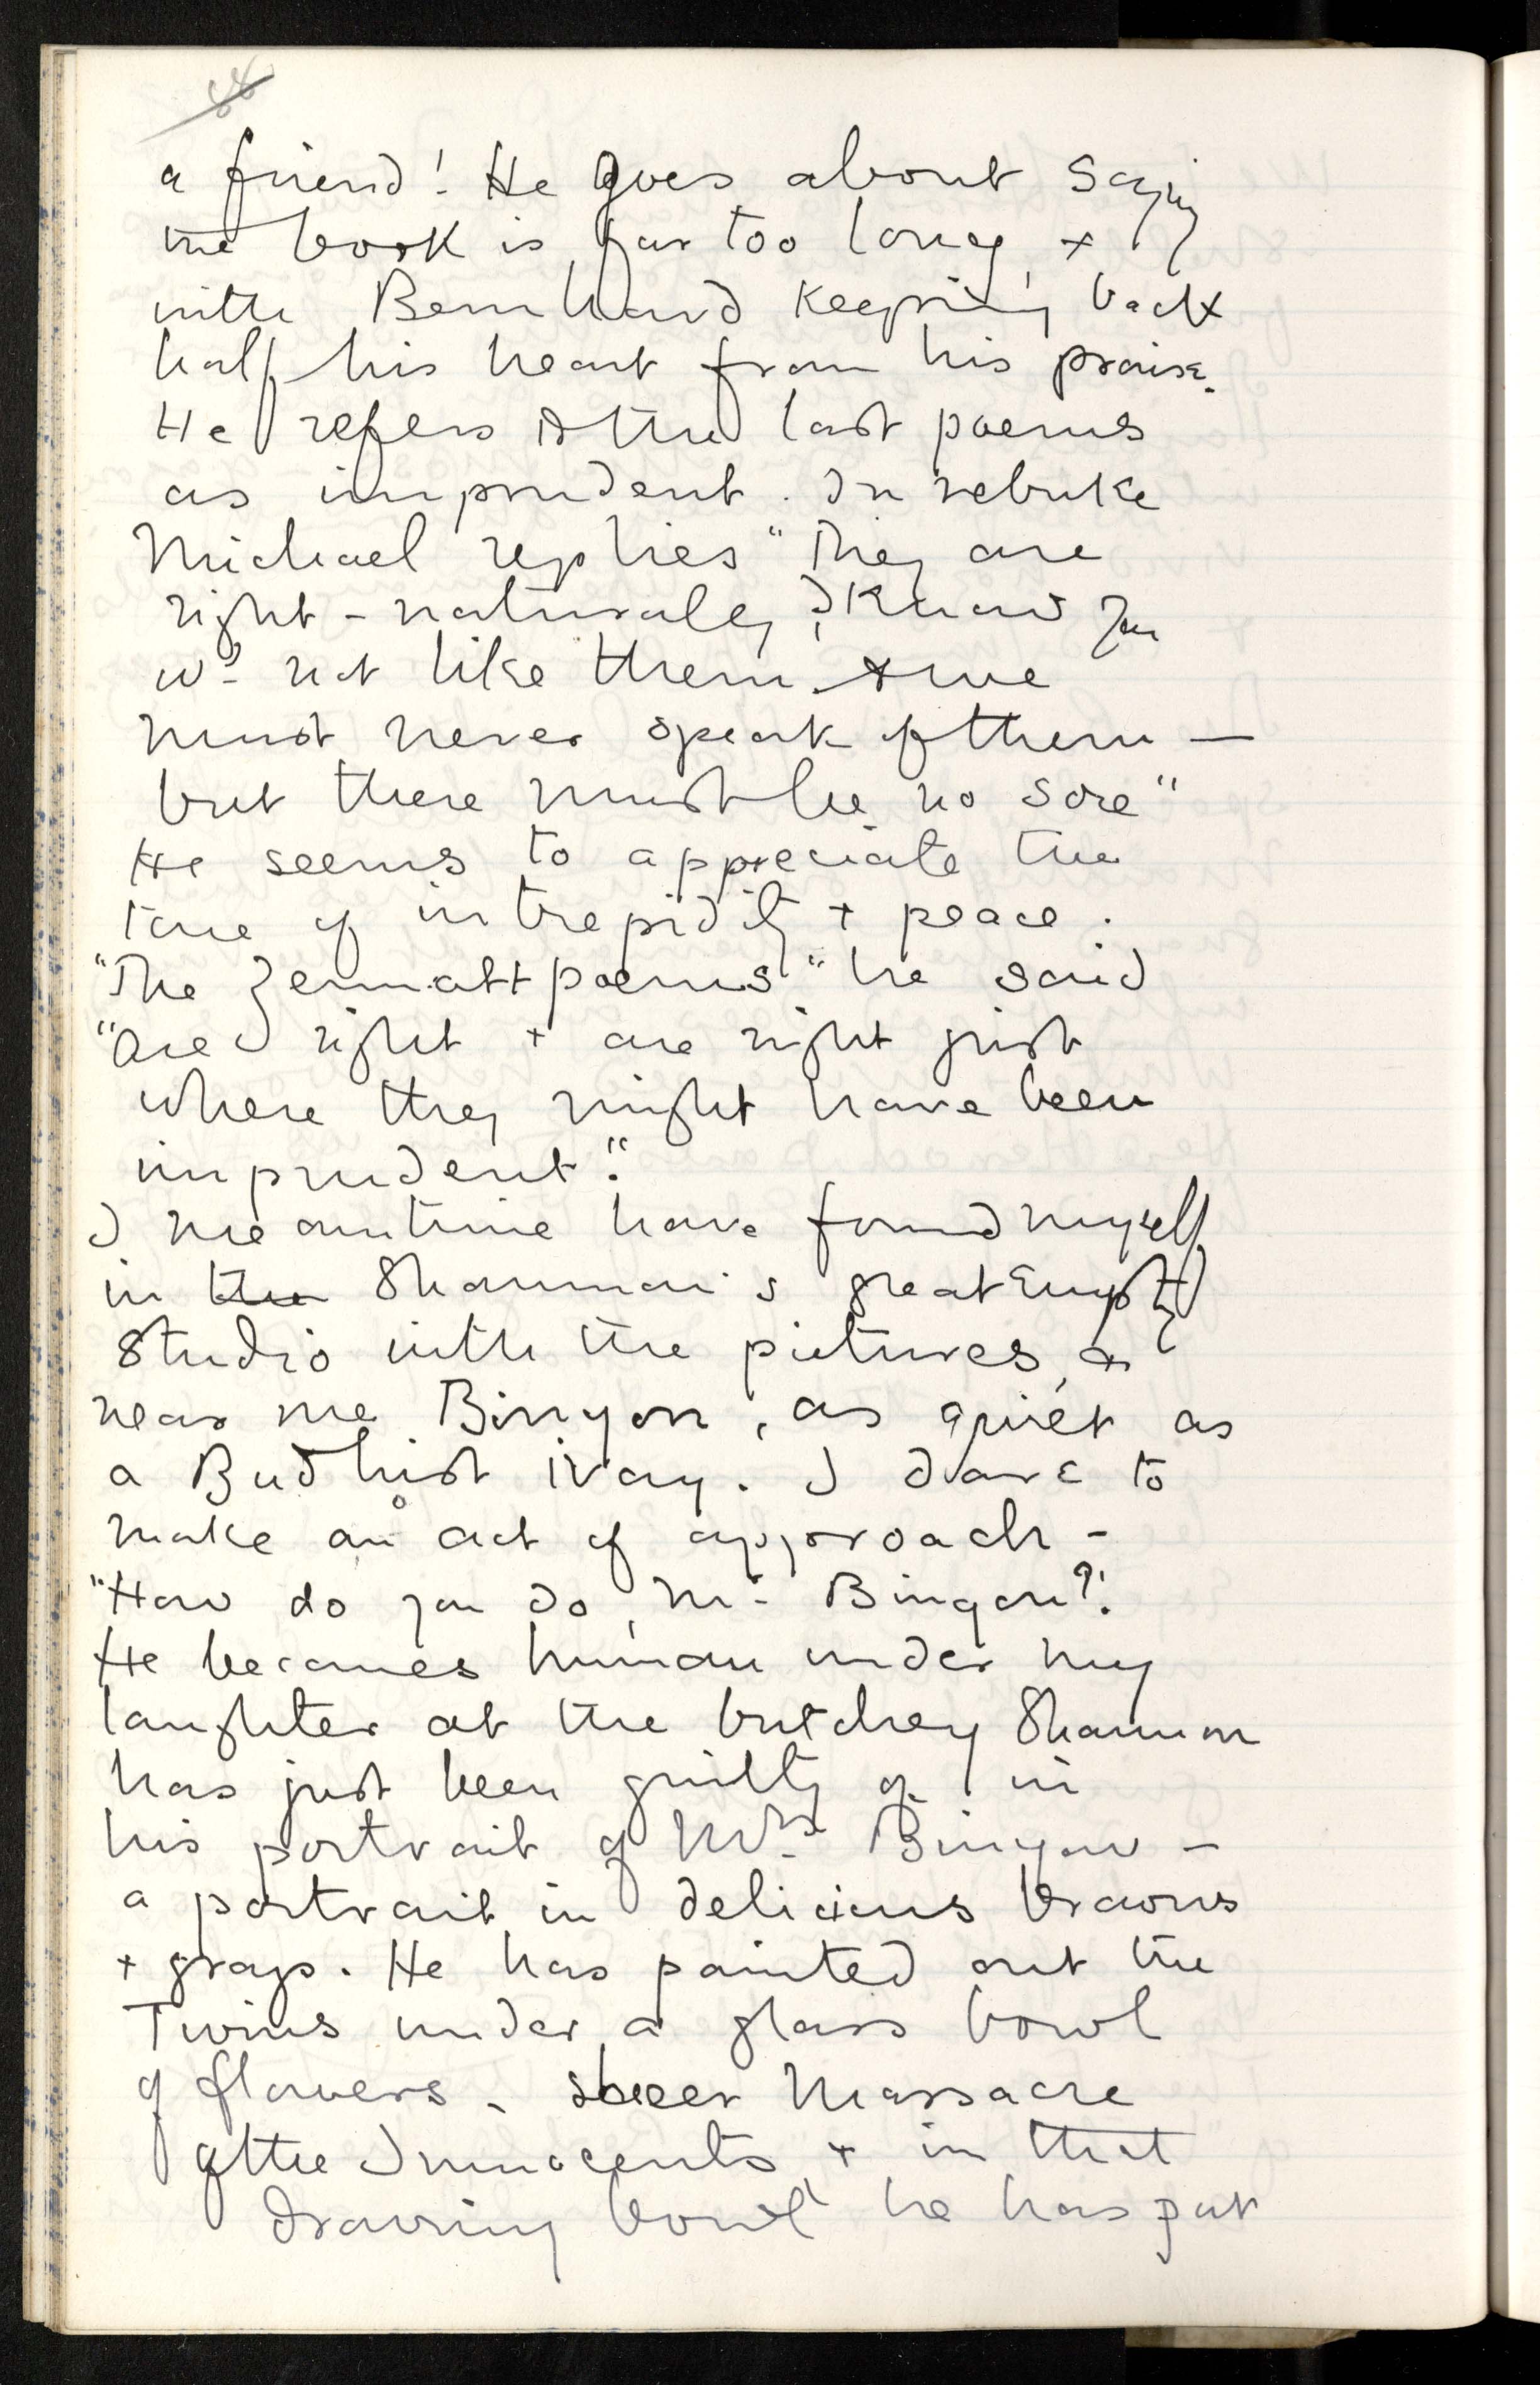 a friend! He goes about saying
the book is far too long, +
with Bernhard keeping back
half his heart from his praise.
He refers to the last poems
as imprudent. In rebuke
Michael replies "They are
right - naturaly, I know you
wd not like them + we
must never speak of them —
but there must be no sore"
He seems to appreciate the
tone of intrepidity + peace.
"The Zermatt poems" he said
"are right + are right just
where they might have been
imprudent."
I meantime have found myself
in the Shannon's great Empty
studio with the pictures, +
near me Binyon, as quiet as
a Budhist ivory. I dare to
make an act of approach -
"How do you do, Mr Binyon?"
He becomes human under my
laughter at the butchery Shannon
has just been guilty of in
his portrait of Mrs Binyon -
a portrait in delicious browns
+ grays. He has painted out the
Twins under a glass bowl
of flowers - sheer Massacre
of the Innocents, + in that
drowning bowl he has put